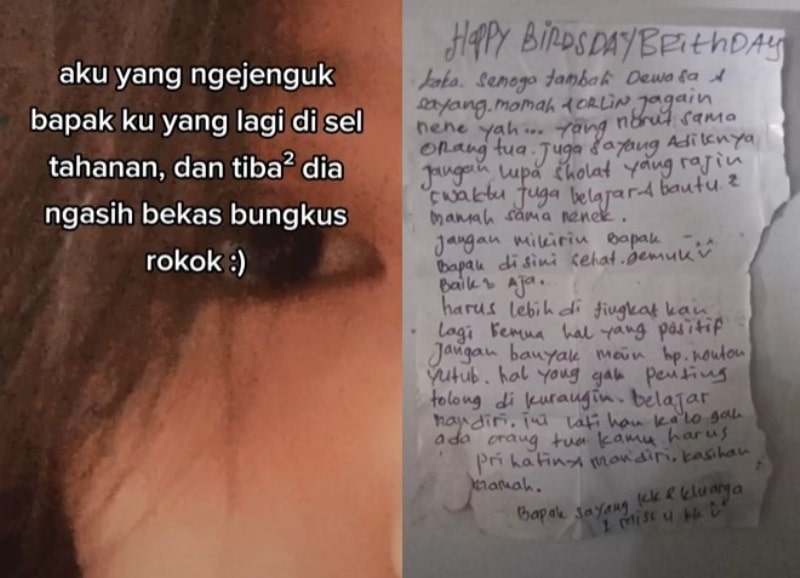 aku yang ngejenguk
bapak ku yang lagi di sel
tahanan, dan tiba² dia
ngasih bekas bungkus
rokok :)
HAPPY BIRDSDAY BRithDAY
kaka. semoga tambah Dewasa &
sayang. mamah & ORLIN jagain
nene yah... yang nurut sama
orang tua. juga sayang Adiknya
jangan lupa sholat yang rajin
5 waktu juga belajar & bantu 2
mamah sama nenek.
jangan mikirin Bapak
Bapak disini sehat. gemuk
Baik 2 Aja.
harus lebih di tingkat kan
lagi semua hal yang positif
jangan banyak main hp. nonton
yutub. hal yang gak penting
tolong di kurangin. belajar
mandiri. ini lati han kalo gak
ada orang tua kamu harus
pri hatin & mandiri. kasihan
mamah.
Bapak sayang kk & kluarga
I miss u kk